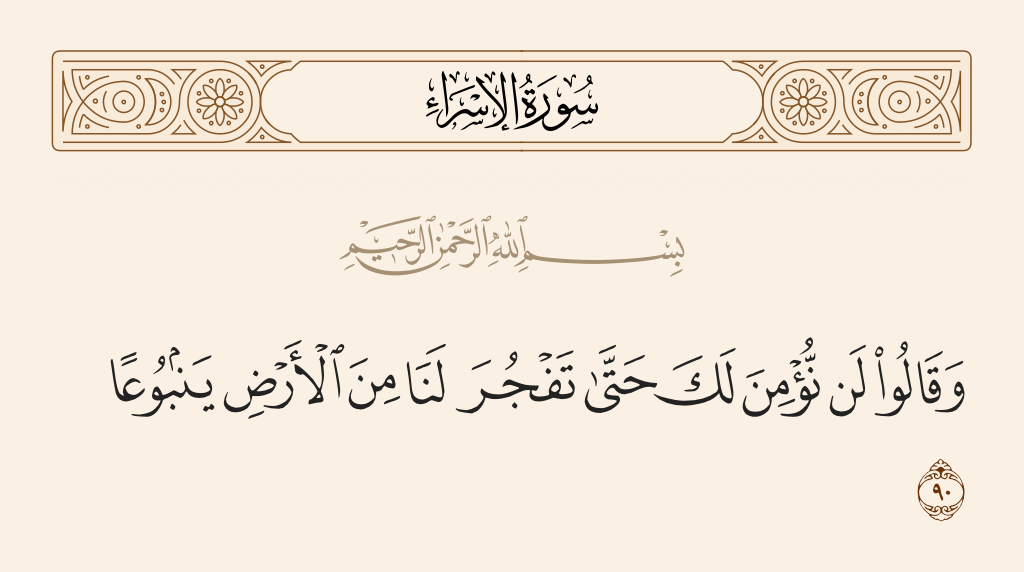 سُورَةُ الإِسْرَاءِ
بِسْمِ ٱللَّهِ ٱلرَّحْمَٰنِ ٱلرَّحِيمِ
وَقَالُوا۟ لَن نُّؤْمِنَ لَكَ حَتَّىٰ تَفْجُرَ لَنَا مِنَ ٱلْأَرْضِ يَنۢبُوعًا
٩٠